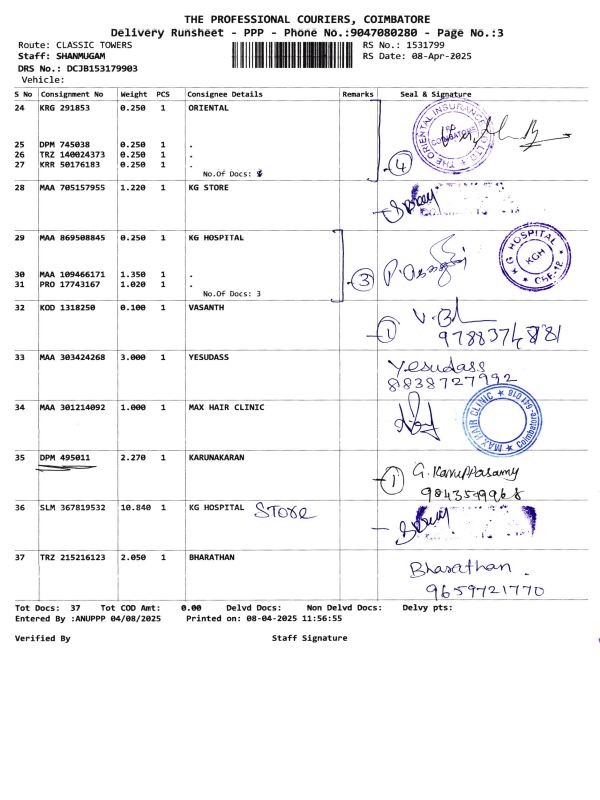 THE PROFESSIONAL COURIERS, COIMBATORE
Delivery Runsheet - PPP - Phone No.:9047080280 - Page No.:3
Route: CLASSIC TOWERS RS No.: 1531799
Staff: SHANMUGAM RS Date: 08-Apr-2025
DRS No.: DCJB153179903
Vehicle:
S No Consignment No Weight PCS Consignee Details Remarks Seal & Signature
24 KRG 291853 0.250 1 ORIENTAL
THE ORIENTAL INSURANCE CO LTD
COIMBATORE
25 DPM 745038 0.250 1 .
26 TRZ 140024373 0.250 1 .
27 KRR 50176183 0.250 1 .
No.Of Docs: 4
28 MAA 705157955 1.220 1 KG STORE
29 MAA 869508845 0.250 1 KG HOSPITAL
K G HOSPITAL
KGH
CBE-18
30 MAA 109466171 1.350 1 .
31 PRO 17743167 1.020 1 .
3
No.Of Docs: 3
32 KOD 1318250 0.100 1 VASANTH
1
33 MAA 303424268 3.000 1 YESUDASS
Yesudass
8838727992
34 MAA 301214092 1.000 1 MAX HAIR CLINIC
MAX HAIR CLINIC
Coimbatore-641 018
35 DPM 495011 2.270 1 KARUNAKARAN
1 G. Karuppasamy
36 SLM 367819532 10.840 1 KG HOSPITAL Store
37 TRZ 215216123 2.050 1 BHARATHAN
Bharathan.
9659721770
Tot Docs: 37 Tot COD Amt: 0.00 Delvd Docs: Non Delvd Docs: Delvy pts:
Entered By :ANUPPP 04/08/2025 Printed on: 08-04-2025 11:56:55
Verified By Staff Signature